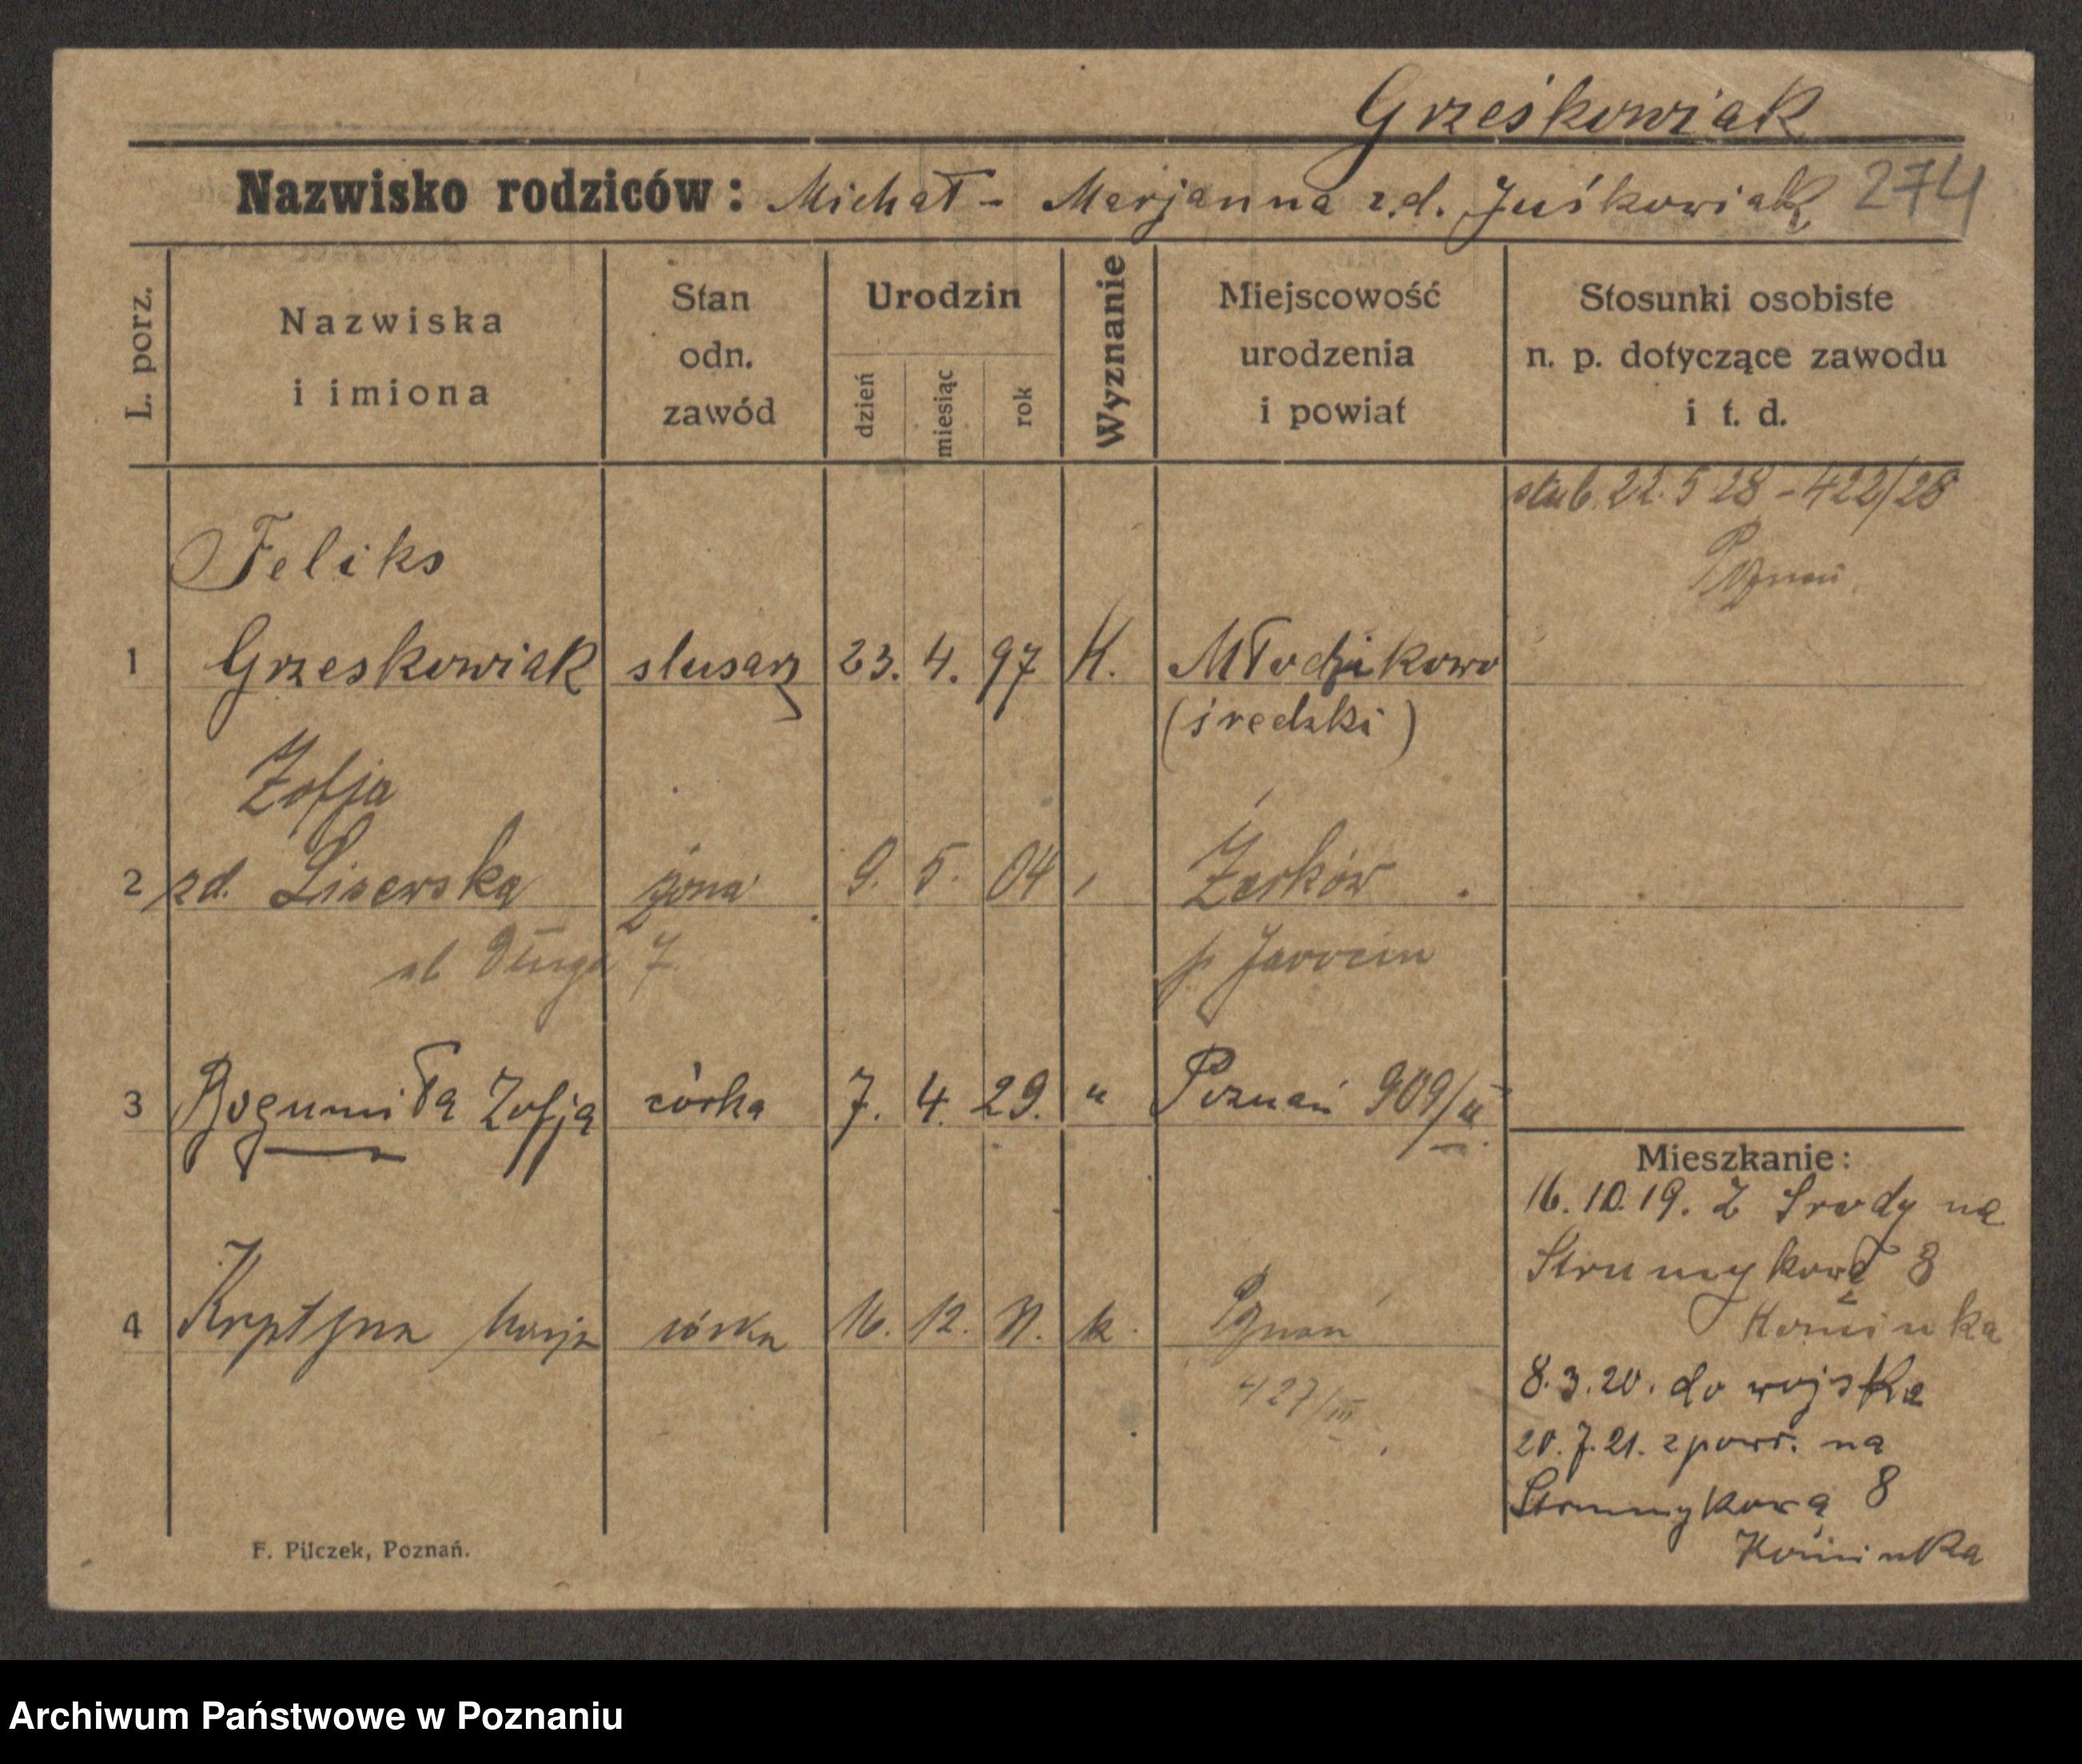 Grześkowiak
Nazwisko rodziców: Michał - Marjanna z.d. Juśkowiak 274
L. porz.
Nazwiska
i imiona
Stan
odn.
zawód
Urodzin
dzień
miesiąc
rok
Wyznanie
Miejscowość
urodzenia
i powiat
Stosunki osobiste
n. p. dotyczące zawodu
i t. d.
ślub. 22. 5 28 - 422/28
Poznań
Feliks
1 Grzeskowiak slusarz 23. 4. 97 K. Młodzikowo
(średzki)
Zofja
2 zd. Lisewska żona 9. 5. 04 Żerków
ul Długa 7 p Jarocin
3 Bogumiła Zofja córka 7. 4. 29. " Poznań 909/II
Mieszkanie:
16. 10. 19. Z Środy na
Strumykową 8
Kominka
4 Krystyna Marja córka 16. 12. 31. k. Poznań
427/III
8. 3. 20. do wojska
20. 7. 21. zpowr. na
Strumykową 8
Kominka
F. Pilczek, Poznań.
Archiwum Państwowe w Poznaniu